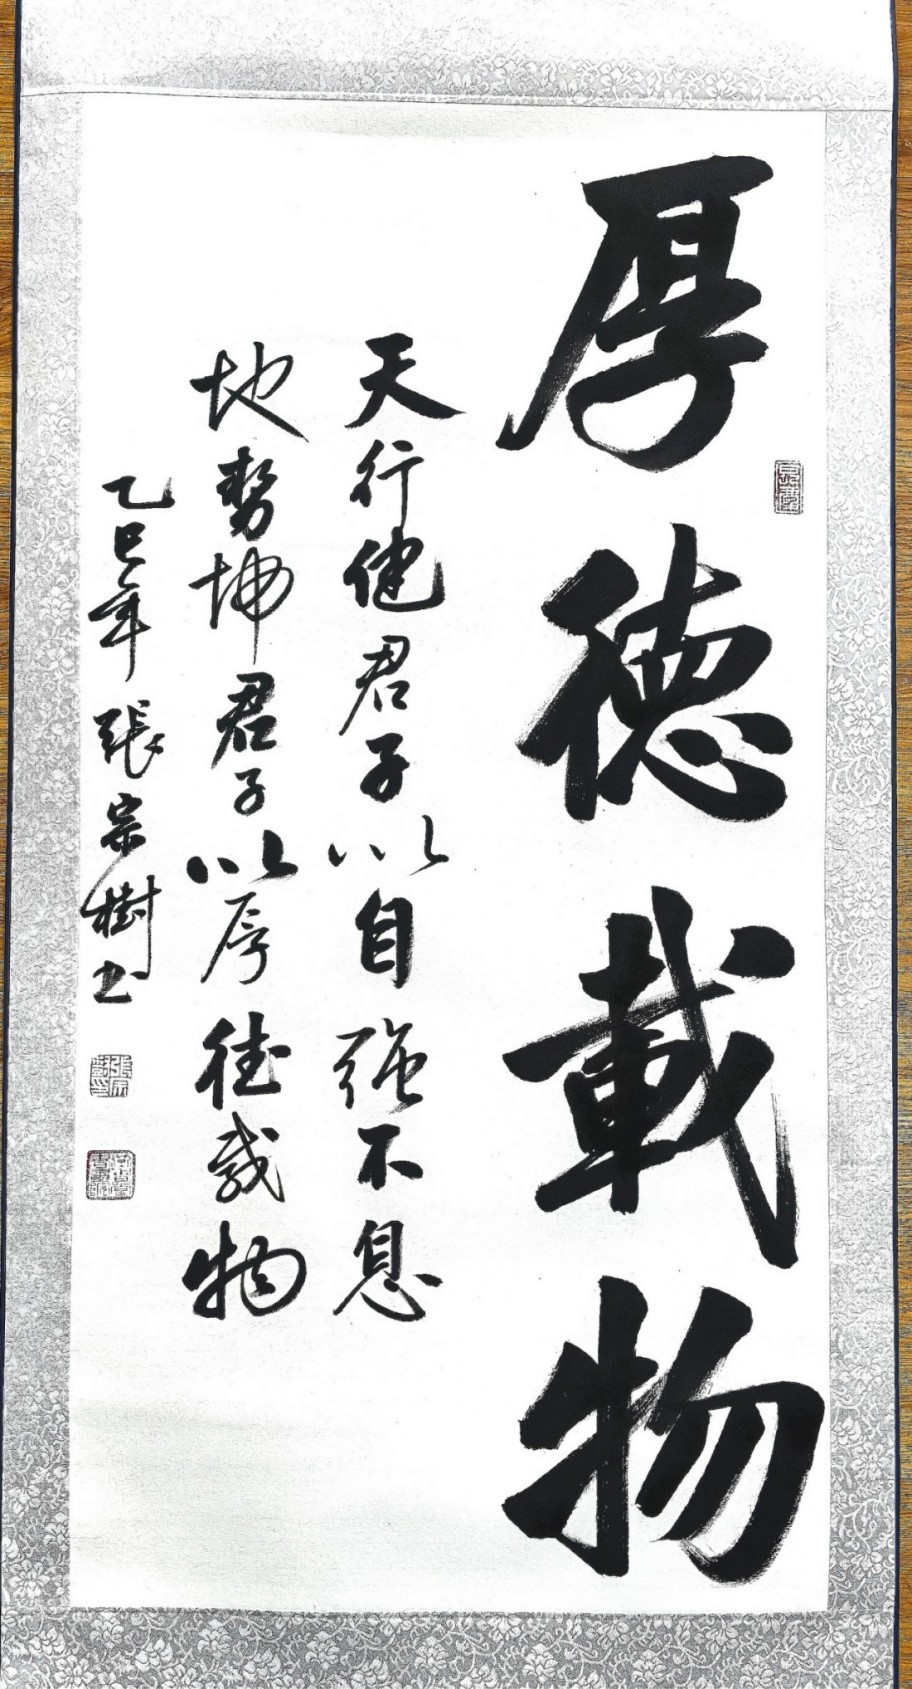 厚德載物
天行健君子以自强不息
地势坤君子以厚德载物
乙巳年張宗樹书